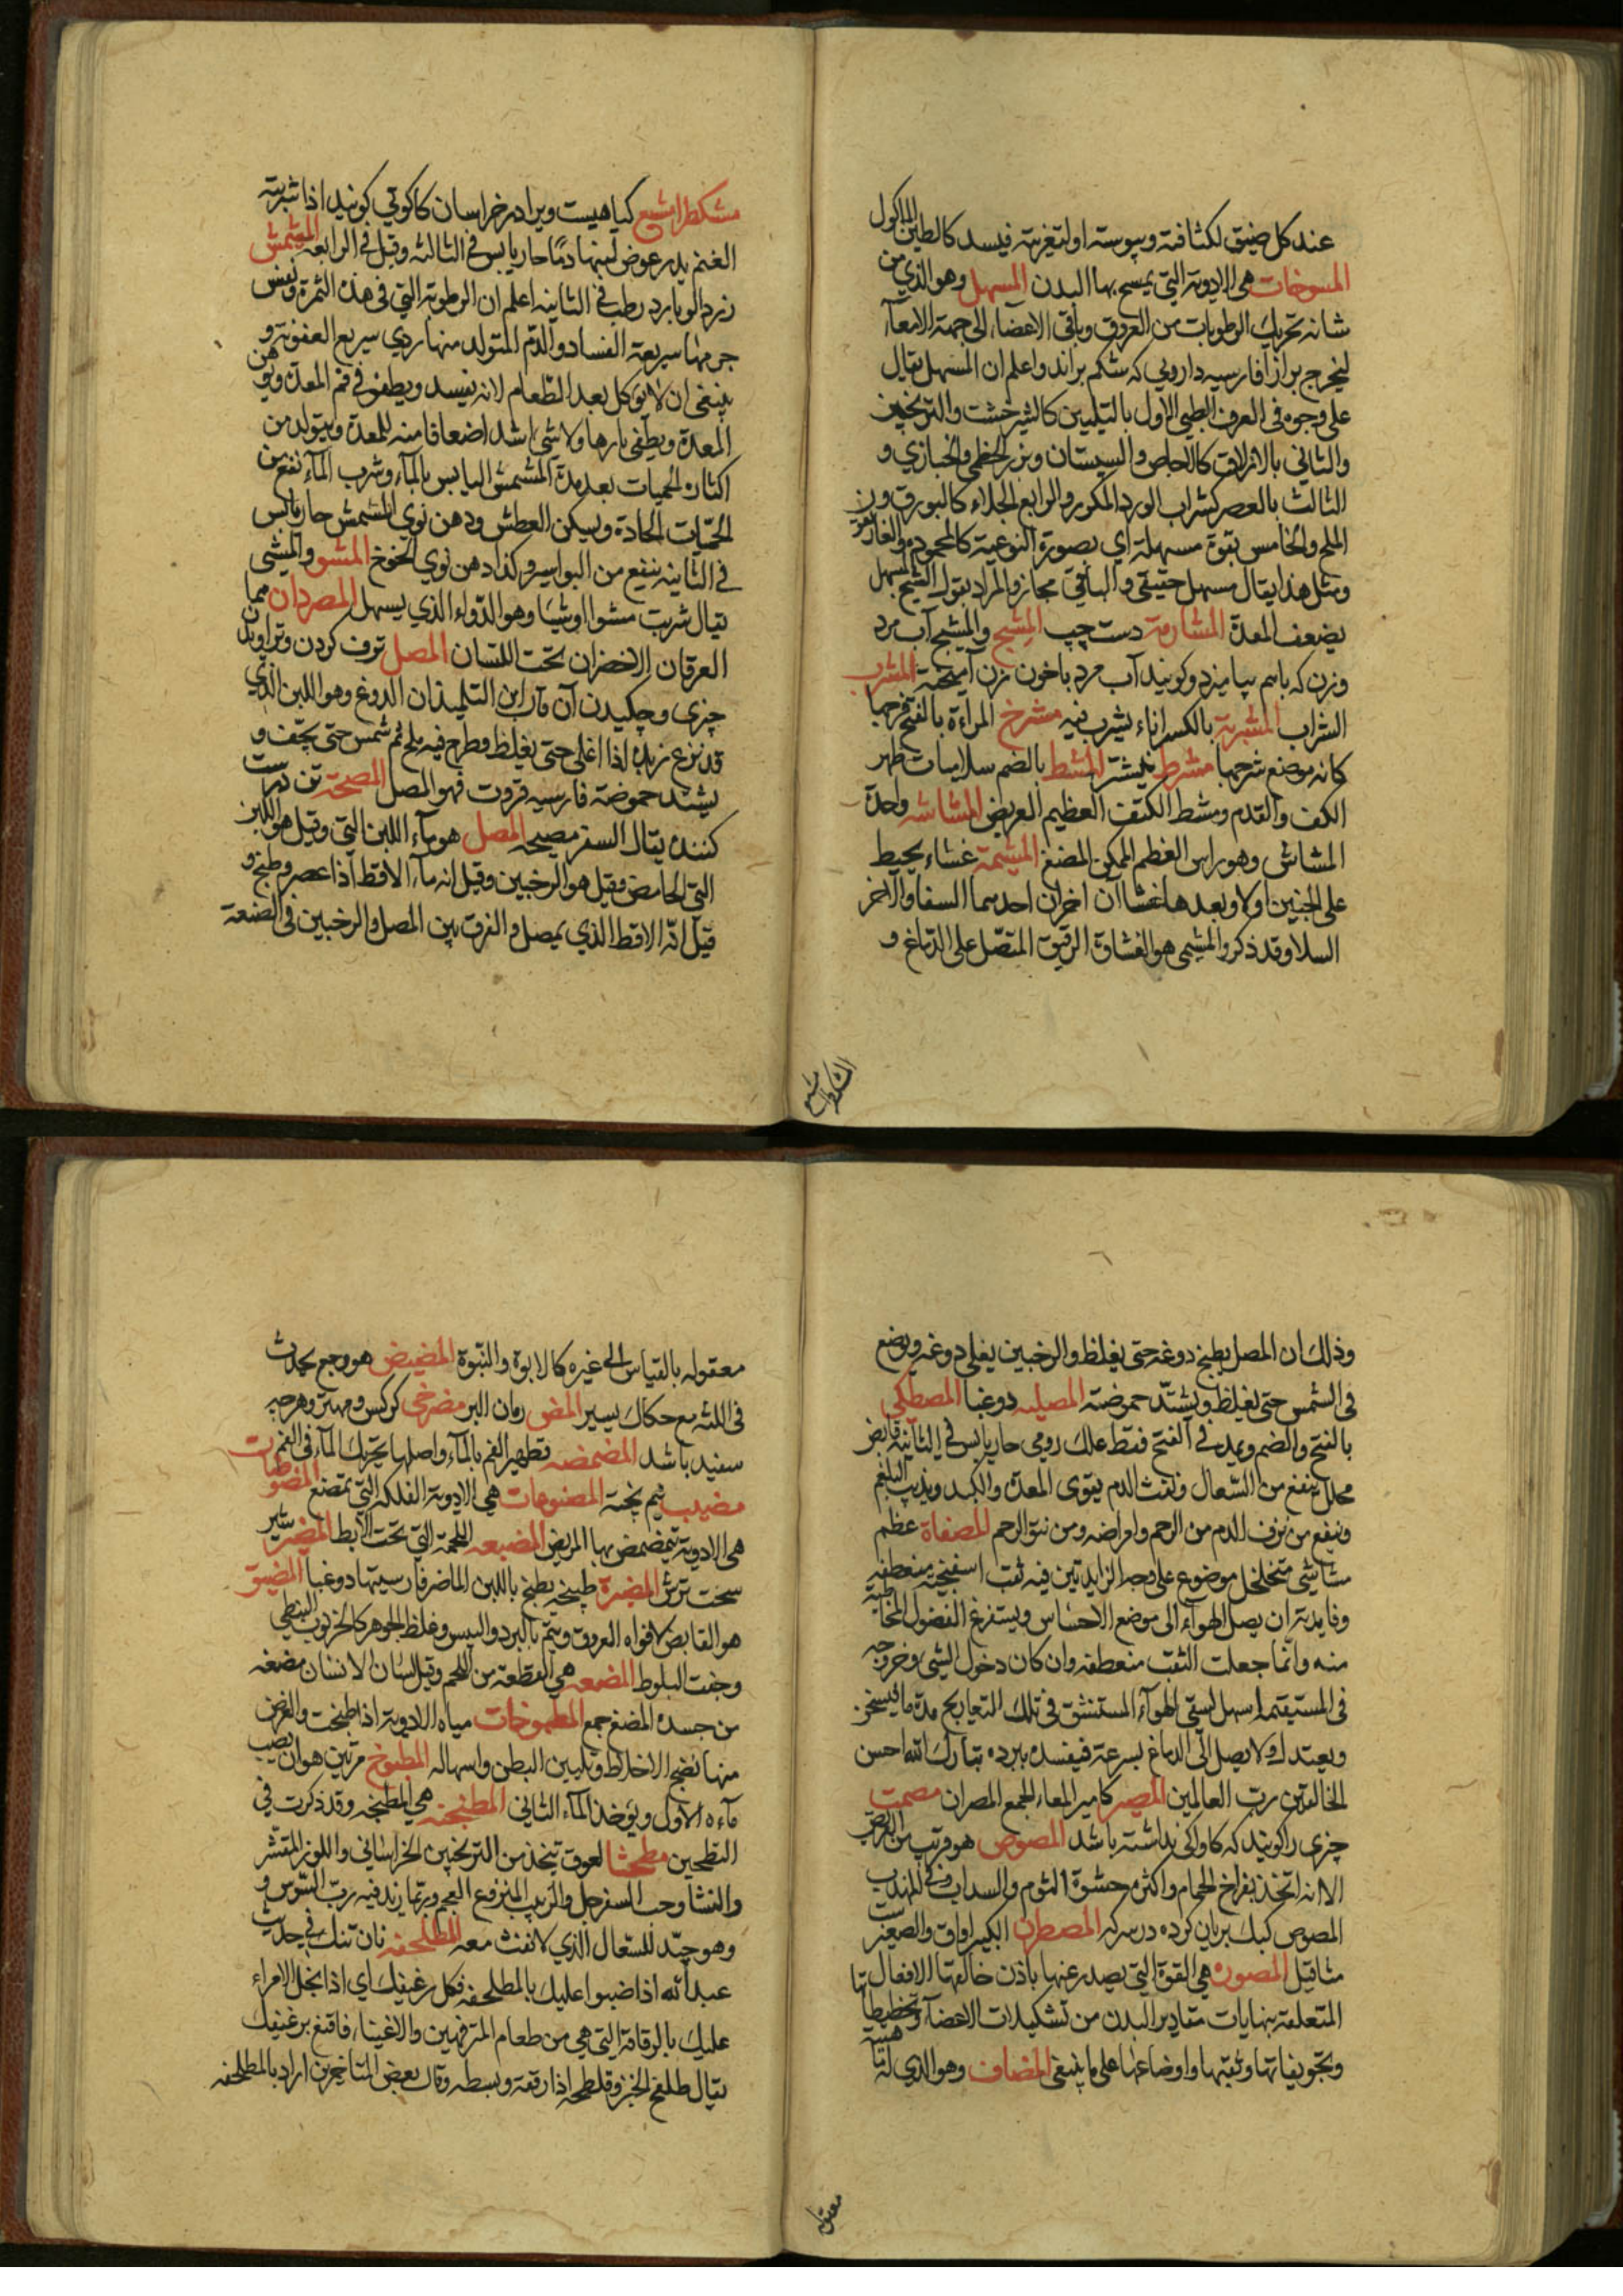 عند كل ضيق لكثافته ويبوسته او لتغريته فيسد كالطين المأكول
المسوخات هى الادوية التى يمسح بها البدن المسهل وهو الذي من
شانه تحريك الرطوبات من العروق وباقى الاعضاء الى جهة الامعآء
ليخرج برازا فارسيه دارويى كه شكم براند واعلم ان المسهل يقال
على وجوه فى العرف الطبى الاول بالتليين كالشيرخشت والترنجبين
والثاني بالازلاق كالاجاص والسپستان وبزر الخطمى والخبازي و
الثالث بالعصر كشراب الورد المكرر والرابع الجلاء كالبورق و
الملح والخامس بقوة مسهلة اي بصورة النوعية كالمحموده والغاريقون
ومثل هذا يقال مسهل حقيقى والباقى مجاز والمراد بقول الشيخ المسهل
يضعف المعدة المشارمة دست چپ المشيج والمشيج آب مرد
وزن كه باهم بياميزد وكويند آب مرد باخون زن آميخته المشرب
الشراب المشربة بالكسر اناء يشرب فيه مشرخ المراءة بالفتح فرجها
كانه موضع شرحها مشرط نيشتر المشط بالضم سلاميات ظهر
الكف والقدم ومشط الكتف العظيم العريض المشاشه واحدة
المشاش وهو راس العظم الممكن المضغ المشيمة غشاء يحيط
على الجنين اولا وبعدها غشاآن اخران احدهما السفا والآخر
السلا وقد ذكر والمشيمى هو الغشاوة الرقيق المتصل على الدماغ و
المشكطرامشيع
مشكطرامشيع كياهيست ويرا در خراسان كاكوتي كويند اذا شربته
الغنم يدر عوض لبنها دمًا حار يابس فى الثالثه وقيل فى الرابعه المشمش
زرد الو بارد رطب فى الثانيه اعلم ان الرطوبة التى فى هذه الثمرة ونفس
جرمها سريعة الفساد والدم المتولد منها ردي سريع العفونة و
ينبغى ان لا يؤكل بعد الطعام لانه يفسد ويطفو فى فم المعدة ويوهن
المعدة ويطفى نارها ولا شى اشد اضعافا منه للمعدة ويتولد من
اكثاره الحميات بعد مدة المشمش اليابس بالمآء وشرب المآء نفع من
الحميات الحادة ويسكن العطش ودهن نوي المشمش حار يابس
فى الثانيه ينفع من البواسير وكذا دهن نوي الخوخ المشو والمشى
يقال شربت مشوا ومشيا وهو الدواء الذي يسهل المصردان مما
العرقان الاخضران تحت اللسان المصل ترف كردن وتراويدن
چيزى وچكيدن آن قال ابن التلميذ ان الدوغ وهو اللبن الذي
قد نزع زبده اذا اغلى حتى يغلظ وطرح فيه ملح ثم شمس حتى يجفف و
يشتد حموضته فارسيه قروت فهو المصل المصحة تن درست
كننده يقال السفر مصيحه المصل هو مآء اللبن التى وقيل هو اللبن
التى الحامض وقيل هو الرخبين وقيل انه مآء الاقط اذا عصر وطبخ و
قيل انّه الاقط الذي يمصل والفرق بين المصل والرخبين فى الصنعة
وذلك ان المصل يطبخ دوغه حتى يغلظ والرخبين يغلى دوغه ويوضع
فى الشمس حتى يغلظ ويشتد حموضته المصليه دوغبا المصطكى
بالفتح والضم ويمد فى الفتح فقط علك رومى حار يابس فى الثانية قابض
محلل ينفع من السعال ونفث الدم يقوى المعدة والكبد ويذيب البلغم
وينفع من نزف الدم من الرحم وامراضه ومن نتو الرحم المصفاة عظم
مشاشى متخلخل موضوع على وجه الزايدتين فيه ثقب اسفنجيه منعطفه
وفايدته ان يصل الهواء الى موضع الاحساس ويستفرغ الفضول المخاطية
منه وانما جعلت الثقب منعطفه وان كان دخول الشى وخروجه
فى المستقيم اسهل ليبقى الهوآء المستنشق فى تلك التعاريج مدة ما فيسخن
ويعتدل ولا يصل الى الدماغ بسرعة فيفسده ببرده تبارك الله احسن
الخالقين رب العالمين المصير كامير المعاء الجمع المصران مصمت
چيزى را كويند كه كاواكى نداشته باشد المصوص هو قريب من القريص
الا انه اتخذ بفراخ الحمام واكثره حشوة الثوم والسداب وفى المهذب
المصوص كبك بريان كرده در سركه المصطرن الكبير اواق والصغير ست
مثاقيل المصوره هى القوة التى يصدر عنها باذن خالقها الافعال
المتعلقة بنهايات مقادير البدن من تشكيلات الاعضآء وتخطيطاتها
وتجويفاتها وثقبها واوضاعها على ما ينبغى المضاف وهو الذي له هيئة
معقوله
معقوله بالقياس الى غيره كالابوة والنبوة المضيض هو وجع يحدث
فى اللثه مع حكاك يسير المض رمان البر مضرخى كركس ومهتر وهرچه
سفيد باشد المضمضه تطهير الفم بالمآء واصلها تحريك المآء فى الفم
مضيب نيم پخته المضنوهات هى الادوية الفلكه التى تمضغ المضوضات
هى الادوية يتمضمض بها المريض المضيعه اللحمة التى تحت الابط المضير شير
سخت ترش المضيرة طبيخه يطبخ باللبن الماضر فارسيتها دوغبا المضيق
هو القابض لافواه العروق ويتم بالبرد واليبس وغلظ الجوهر كالخرنوب النبطى
وجفت البلوط المضغه هى القطعة من اللحم وقيل لسان الانسان مضغه
من جسده المضغ جمع المطبوخات مياه الادوية اذا طبخت والغرض
منها نضج الاخلاط وتليين البطن واسهاله المطبوخ مرتين هو ان يصب
مآءه الاول ويؤخذ المآء الثاني المطنجنه هى المطبخه وقد ذكرت فى
التطجين مطحثا لعوق يتخذ من الترنجبين الخراساني واللوز المقشر
والنشا وحب السفرجل والزبيب المنزوع العجم وربما يزيد فيه رب السوس و
وهو جيّد للسّعال الذي لا نفث معه المطلحفه نان تنك فى حديث
عبد الله اذا ضبوا عليك بالمطلحفه فكل رغيفك اي اذا بخل الامراء
عليك بالرقاقة التى هى من طعام المترفهين والاغنياء فاقنع برغيفك
يقال طلفح الخبز وفلطحه اذا رققه وبسطه وقال بعض المتاخرين اراد بالمطلحفه